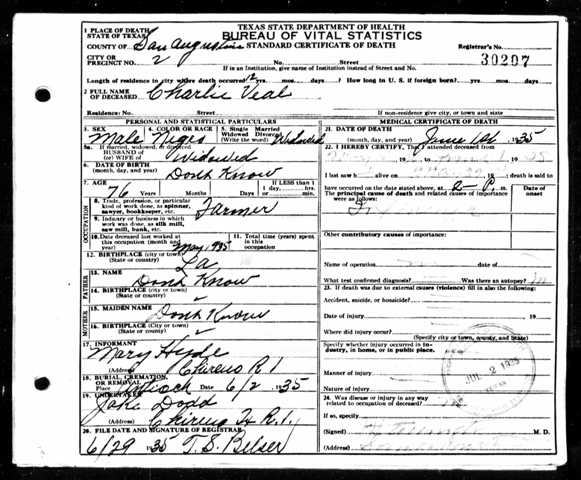 TEXAS STATE DEPARTMENT OF HEALTH
BUREAU OF VITAL STATISTICS
STANDARD CERTIFICATE OF DEATH
1 PLACE OF DEATH
STATE OF TEXAS
COUNTY OF San Augustine
Registrar's No.
CITY OR
PRECINCT NO. 2 No. Street
30207
If in an Institution, give name of Institution instead of Street and No.
Length of residence in city where death occurred 12 yrs. mos. days? How long in U. S. if foreign born? yrs. mos. days
2 FULL NAME
OF DECEASED Charlie Veal
Residence: No. Street
If non-residence give city, or town and state
PERSONAL AND STATISTICAL PARTICULARS
3. SEX 4. COLOR OR RACE 5. Single Married
Widowed Divorced
(Write the word)
Male Negro Widowed
5a. If married, widowed, or divorced
HUSBAND OF
(or) WIFE OF Widowed
6. DATE OF BIRTH
(month, day, and year) Don't Know
7. AGE
76 Years Months Days
IF LESS than 1
1 day, hrs.
or min.
OCCUPATION
8. Trade, profession, or particular
kind of work done, as spinner,
sawyer, bookkeeper, etc. Farmer
9. Industry or business in which
work was done, as silk mill,
saw mill, bank, etc.
10. Date deceased last worked at
this occupation (month and
year) May, 1935
11. Total time (years) spent
in this
occupation
12. BIRTHPLACE (city or town)
(State or country) La
FATHER
13. NAME Don't Know
14. BIRTHPLACE (city or town)
(State or country)
MOTHER
15. MAIDEN NAME Don't Know
16. BIRTHPLACE (city or town)
(State or country)
17. INFORMANT
Mary Hyde
(Address) Chireno R 1
18. BURIAL, CREMATION,
OR REMOVAL
Place Antioch Date 6/2 1935
19. UNDERTAKER
Jake Dodd
(Address) Chireno Tx R.1.
20. FILE DATE AND SIGNATURE OF REGISTRAR
6/29 1935 T. S. Belser
MEDICAL CERTIFICATE OF DEATH
21. DATE OF DEATH
(month, day, and year) June 1st 1935
22. I HEREBY CERTIFY, That I attended deceased from
death is said to
have occurred on the date stated above, at 2 P. m.
The principal cause of death and related causes of importance
were as follows:
Date of
onset
Other contributory causes of importance:
Name of operation date of
What test confirmed diagnosis? Was there an autopsy?
23. If death was due to external causes (violence) fill in also the following:
Accident, suicide, or homicide?
Date of injury 19
Where did injury occur?
(Specify city or town, county, and State)
Specify whether injury occurred in industry, in home, or in public place.
Manner of injury
Nature of injury
24. Was disease or injury in any way
related to occupation of deceased?
If so, specify
(Signed) M. D.
(Address)
JUL 2 1935